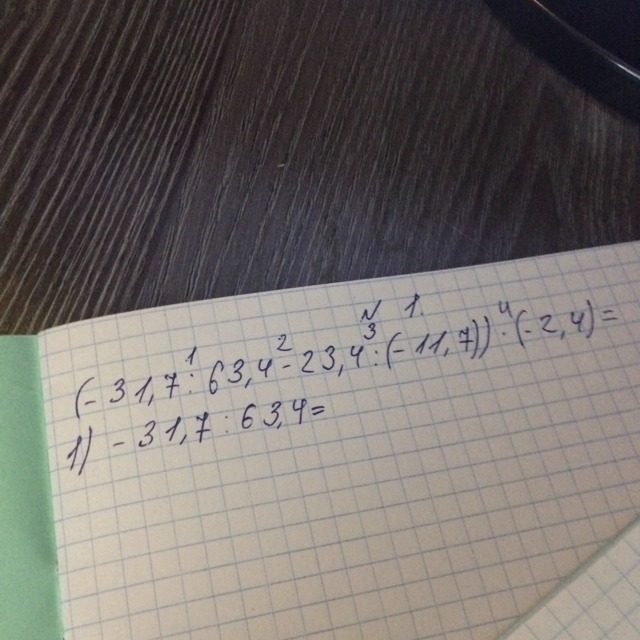 N 1.
1 2 3 4
(-31,7:63,4-23,4:(-11,7)):(-2,4)=
1) -31,7:63,4=